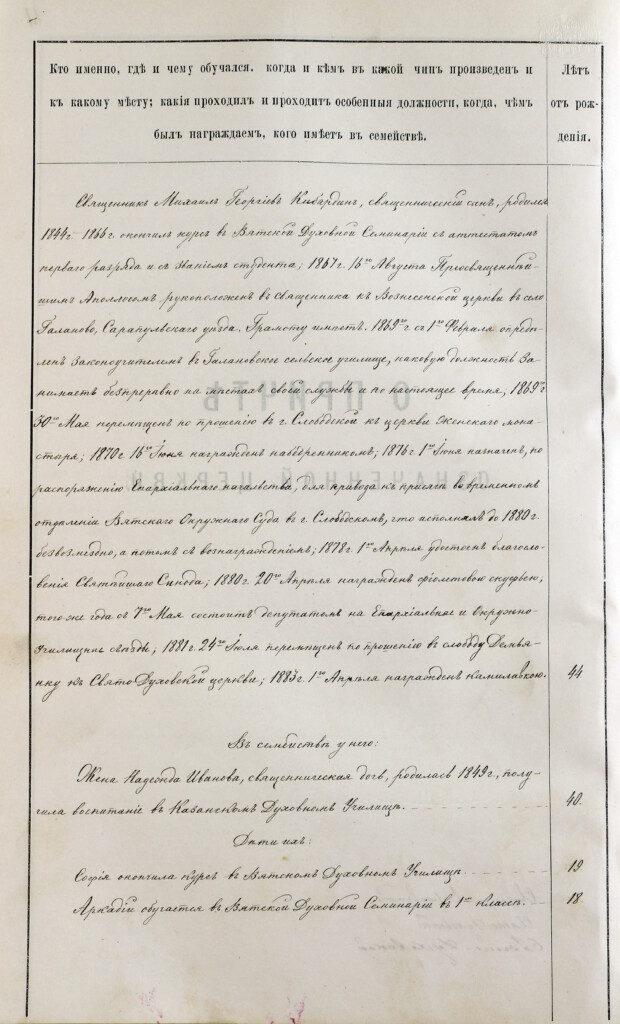 Кто именно, гдѣ и чему обучался. когда и кѣмъ въ какой чинъ произведенъ и
къ какому мѣсту; какія проходилъ и проходитъ особенныя должности, когда, чѣмъ
былъ награждаемъ, кого имѣетъ въ семействѣ.
Лѣтъ
отъ рож-
денія.
Священникъ Михаилъ Георгіевъ Кибардинъ, священническій сынъ, родился
1844 г. 1866 г. окончилъ курсъ въ Вятской Духовной Семинаріи съ аттестатомъ
перваго разряда и съ званіемъ студента; 1867 г. 16го Августа Преосвященнѣй-
шимъ Аполлосомъ рукоположенъ въ священника къ Вознесенской церкви въ село
Галаново, Сарапульскаго уѣзда. Грамоту имѣетъ. 1869 г. съ 1го Февраля опредѣ-
ленъ Законоучителемъ въ Галановское сельское училище, каковую должность за-
нимаетъ безпрерывно на мѣстахъ своей службы и по настоящее время, 1869 г.
30го Мая перемѣщенъ по прошенію въ г. Слободской къ церкви женскаго мона-
стыря; 1870 г. 16го Іюня награжденъ набедренникомъ; 1876 г. 1го Іюня назначенъ, по
распоряженію Епархіальнаго начальства, для привода къ присягѣ во временномъ
отдѣленіи Вятскаго Окружнаго Суда въ г. Слободскомъ, что исполнялъ до 1880 г.
безвозмездно, а потомъ съ вознагражденіемъ; 1878 г. 1го Апрѣля удостоенъ благосло-
венія Святѣйшаго Синода; 1880 г. 20го Апрѣля награжденъ фіолетовою скуфьею,
того-же года съ 7го Мая состоитъ депутатомъ на Епархіальные и Окружно-
Училищные съѣзды, 1881 г. 24го Іюля перемѣщенъ по прошенію въ слободу Демья-
нку къ Свято-Духовской церкви; 1883 г. 1го Апрѣля награжденъ камилавкою. 44
Въ семействѣ у него:
Жена Надежда Иванова, священническая дочь, родилась 1849 г., полу-
чила воспитаніе въ Казанскомъ Духовномъ Училищѣ. 40.
Дѣти ихъ:
Софія окончила курсъ въ Вятскомъ Духовномъ Училищѣ 19
Аркадій обучается въ Вятской Духовной Семинаріи въ 1мъ классѣ. 18